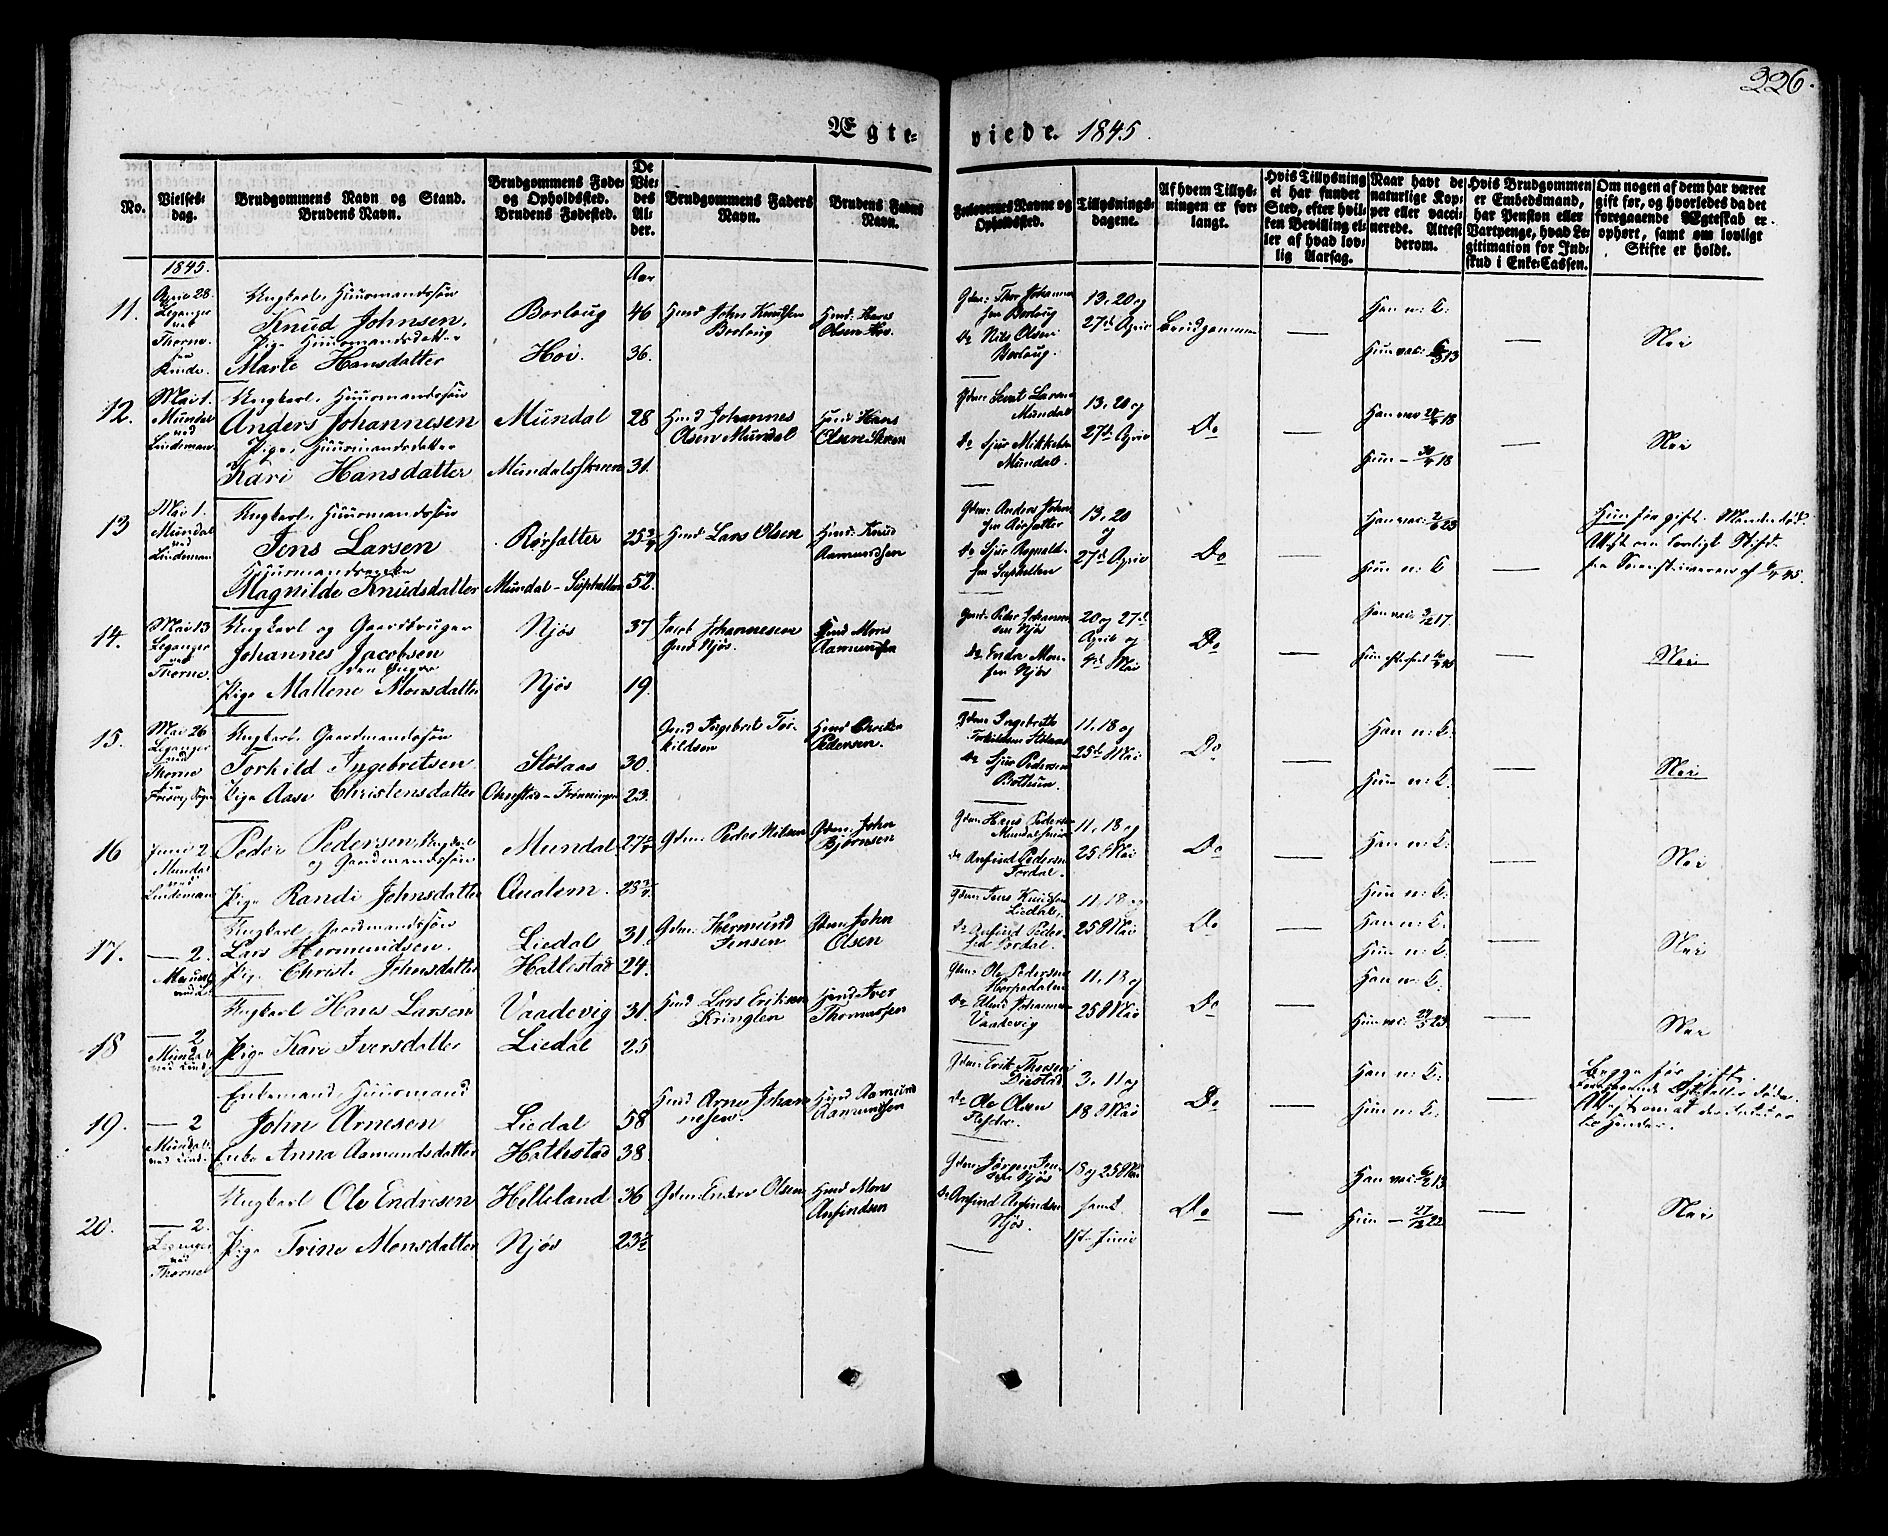 226.
Ægte- viede. 1845.
No.
Vielses-
dag.
Brudgommens Navn og Stand.
Brudens Navn.
Brudgommens Føde-
og Opholdssted.
Brudens Fødested.
De
Vie-
des
Al-
der.
Brudgommens Faders
Navn.
Brudens Faders
Navn.
Forlovernes Navne og
Opholdssted.
Tillysnings-
dagene.
Af hvem Tillys-
ningen er for-
langt.
Hvis Tillysning
ei har fundet
Sted, efter hvil-
ken Bevilling el-
ler af hvad lov-
lig Aarsag.
Naar havt de
naturlige Kop-
per eller vacci-
nerede. Attest
derom.
Hvis Brudgommen
er Embedsmand,
har Pension eller
Vartpenge, hvad Le-
gitimation for Ind-
skud i Enke-Cassen.
Om nogen af dem har været
gift før, og hvorledes da det
foregaaende Ægteskab er
ophørt, samt om lovligt
Skifte er holdt.
1845.
Aar
11.
April 28.
Leganger
ved
Thorne
Ungkarl, Huusmandssøn
Knud Johnsen.
Pige Huusmandsdatter
Marte Hansdatter
Borlaug
Hov.
46
36.
Husmd John Knudsen
Borlaug
Husmd: Hans
Olsen Hov.
Gdm: Thor Johannes-
sen Borlaug
do Nils Olsen
Borlaug.
13, 20 og
27de April
Brudgommen
Han n: K:
Hun vac: 13
Nei
12.
Mai 1.
Mundal
ved
Lindeman
Ungkarl, Huusmandssøn
Anders Johannesen
Pige, Huusmandsdatter
Kari Hansdatter
Mundal
Mundalsskreen
28
31.
Husmd Johannes
Olsen Mundal
Husmd Hans
Olsen Skreen
Mundal
do Sjur Mikkelsen
Mundal.
13, 20 og
27de April
Do
Han vac 18
Hun – 30/9 18
Nei
13
Mai 1.
Mundal
ved
Lindeman
Ungkarl, Huusmandssøn
Jens Larsen
Huusmandsenke
Magnilde Knudsdatter
Rørsatter
Mundal –
25 3/4
52.
Husmd Lars Olsen
Husmd: Knud
Aamundsen
Gdm: Anders Johan-
sen Rørsatter
do Sjur Rognald-
sen
13, 20
og
27de April
Do
Han vac: 23
Hun n: K
Hun før gift. Manden død.
Attest om lovligt Skifte
fra Sorenskriveren af 45.
14.
Mai 13
Leganger
ved
Thorne.
Ungkarl og Gaardbruger
Johannes Jacobsen
Pige Mallene Monsdatter
Njøs
Njøs
37
19.
Jacob Johannesen
Gmd Njøs.
Husmd Mons
Aamundsen
Gmd: Peder Johannes-
sen Njøs
do Endre Mon-
sen Njøs
20 og 27de
April og
4de Mai
Do
Han vac: 17.
Nei
15.
Mai 26
Leganger
ved
Thorne
Ungkarl, Gaardmandssøn
Torkild Ingebretsen
Pige Aase Christensdatter
Stølaas
Ohnstad – Frønningen
30.
23.
Gmd Ingebret Tor-
kildsen
Husmd Christen
Pedersen.
Gdm: Ingebreth
Torkildsen Stølaas
do Sjur Pedersen
11, 18 og
25de Mai
Do
Han n: K:
Hun n: K:
Nei
16
Junii 2
Mundal
ved
Lindeman
Peder Pedersen, Ungkarl
og Gaardmandssøn
Pige Randi Johnsdatter
Mundal
Qualem.
Gdm: Peder Nilsen
Gdm: John
Bjørnsen
Gdm: Hans Pedersen
do Anfind Pedersen
Tordal.
11, 18 og
25 Mai
Do
Han n: K:
Hun n: K:
Nei
17.
— 2.
Mundal
Ungkarl, Gaardmandssøn
Lars Hermundsen.
Pige Christi Johnsdatter
Liedal
Hattestad
31.
24.
Gdm: Hermund
Jensen
Gdm: John
Olsen
Gdm: Jens Knudsen
Liedal,
do Anfind Peder-
sen Tordal.
11, 18 og
25 Mai
Do
Han n: K:
Hun n: K:
Nei
18
— 2
Mundal
ved Lind.
Ungkarl Hans Larsen
Pige Kari Iversdatter
Vaadevig
Liedal
31.
25
Husmd Lars Eriksen
Kringlen
Husmd Iver
Thomassen
Gdm: Ole Pedersen
do Johannes
Vaadevig
11, 18 og
25 Mai
Do
Han n: K:
Hun vac: 23.
Nei
19.
— 2
Mundal
ved Lind.
Enkemand, Huusmand
John Arnesen
Enke Anna Aamundsdatter
Liedal
Hattestad
58
38.
Husmd Arne Johan-
nesen.
Husmd Aamund
Aamundsen
Gdm: Erik Thorsen
do Ole Olsen
3, 11 og
18 Mai
Do
Han n: K:
Hun n: K:
Begge før gifte.
20.
— 2.
Leganger
ved
Thorne
Ungkarl Ole Endresen
Pige Trine Monsdatter
Helleland
Njøs
36
Gdm: Endre Olsen
Husmd Mons
Anfindsen
Gdm: Jørgen
Njøs
do Anfind Anfindsen
Njøs.
18 og 25 Mai
samt
1st Junii
Do
Han vac: 13
Hun – 22
Nei